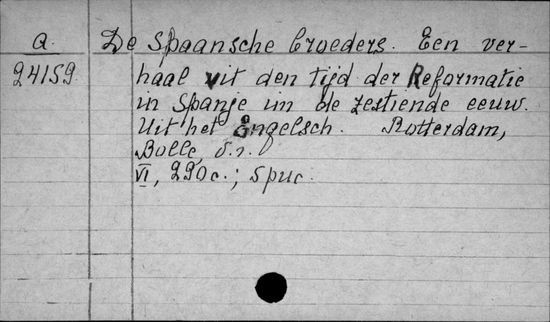 a. De Spaansche broeders. Een ver-
24159 haal uit den tijd der Reformatie
in Spanje in de zestiende eeuw.
Uit het Engelsch. Rotterdam,
Bolle,
VI, 290c.; spuc.